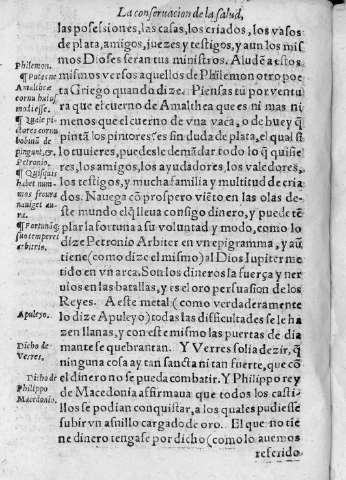 La conseruacion de la salud,
las possesiones, las casas, los criados, los vasos
de plata, amigos, juezes y testigos, y aun los mis
mos Dioses seran tus ministros. Aludē a estos
mismos versos aquellos de Philemon otro poe
ta Griego quando dize. Piensas tù por ventu
ra que el cuerno de Amalthea que es ni mas ni
menos que el cuerno de vna vaca, o de buey q̄
pintā los pintores? es sin duda de plata, el qual si
lo tuuieres, puedesle demādar todo lo q̄ quisie
res, los amigos, los ayudadores, los valedores,
los testigos, y mucha familia y multitud de cria
dos. Nauega cō prospero viēto en las olas de-
ste mundo el q̄ lleua consigo dinero, y puede tē
plar la fortuna a su voluntad y modo, como lo
dize Petronio Arbiter en vn epigramma, y aū
tiene (como dize el mismo) al Dios Iupiter me
tido en vn arca. Son los dineros la fuerça y ner
uios en las batallas, y es el oro persuasion de los
Reyes. A este metal (como verdaderamente
lo dize Apuleyo) todas las difficultades se le ha
zen llanas, y con este mismo las puertas de dia
mante se quebrantan. Y Verres solia dezir, q̄
ninguna cosa ay tan sancta ni tan fuerte, que cō
el dinero no se pueda combatir. Y Philippo rey
de Macedonia affirmaua que todos los casti-
llos se podian conquistar, a los quales pudiesse
subir vn asnillo cargado de oro. El que no tie
ne dinero tengase por dicho (como lo auemos
referido
Philemon.
¶ Putas ne
Amalthææ
cornu huius
modi esse.
¶ Quale pi-
ctores cornu
bobinū de
pingunt, &c.
Petronio.
¶ Quisquis
habet num-
mos secura
nauiget au-
ra.
¶ Fortunāq;
suo temperet
arbitrio.
Apuleyo.
Dicho de
Verres.
Dicho de
Philippo
Macedonio.